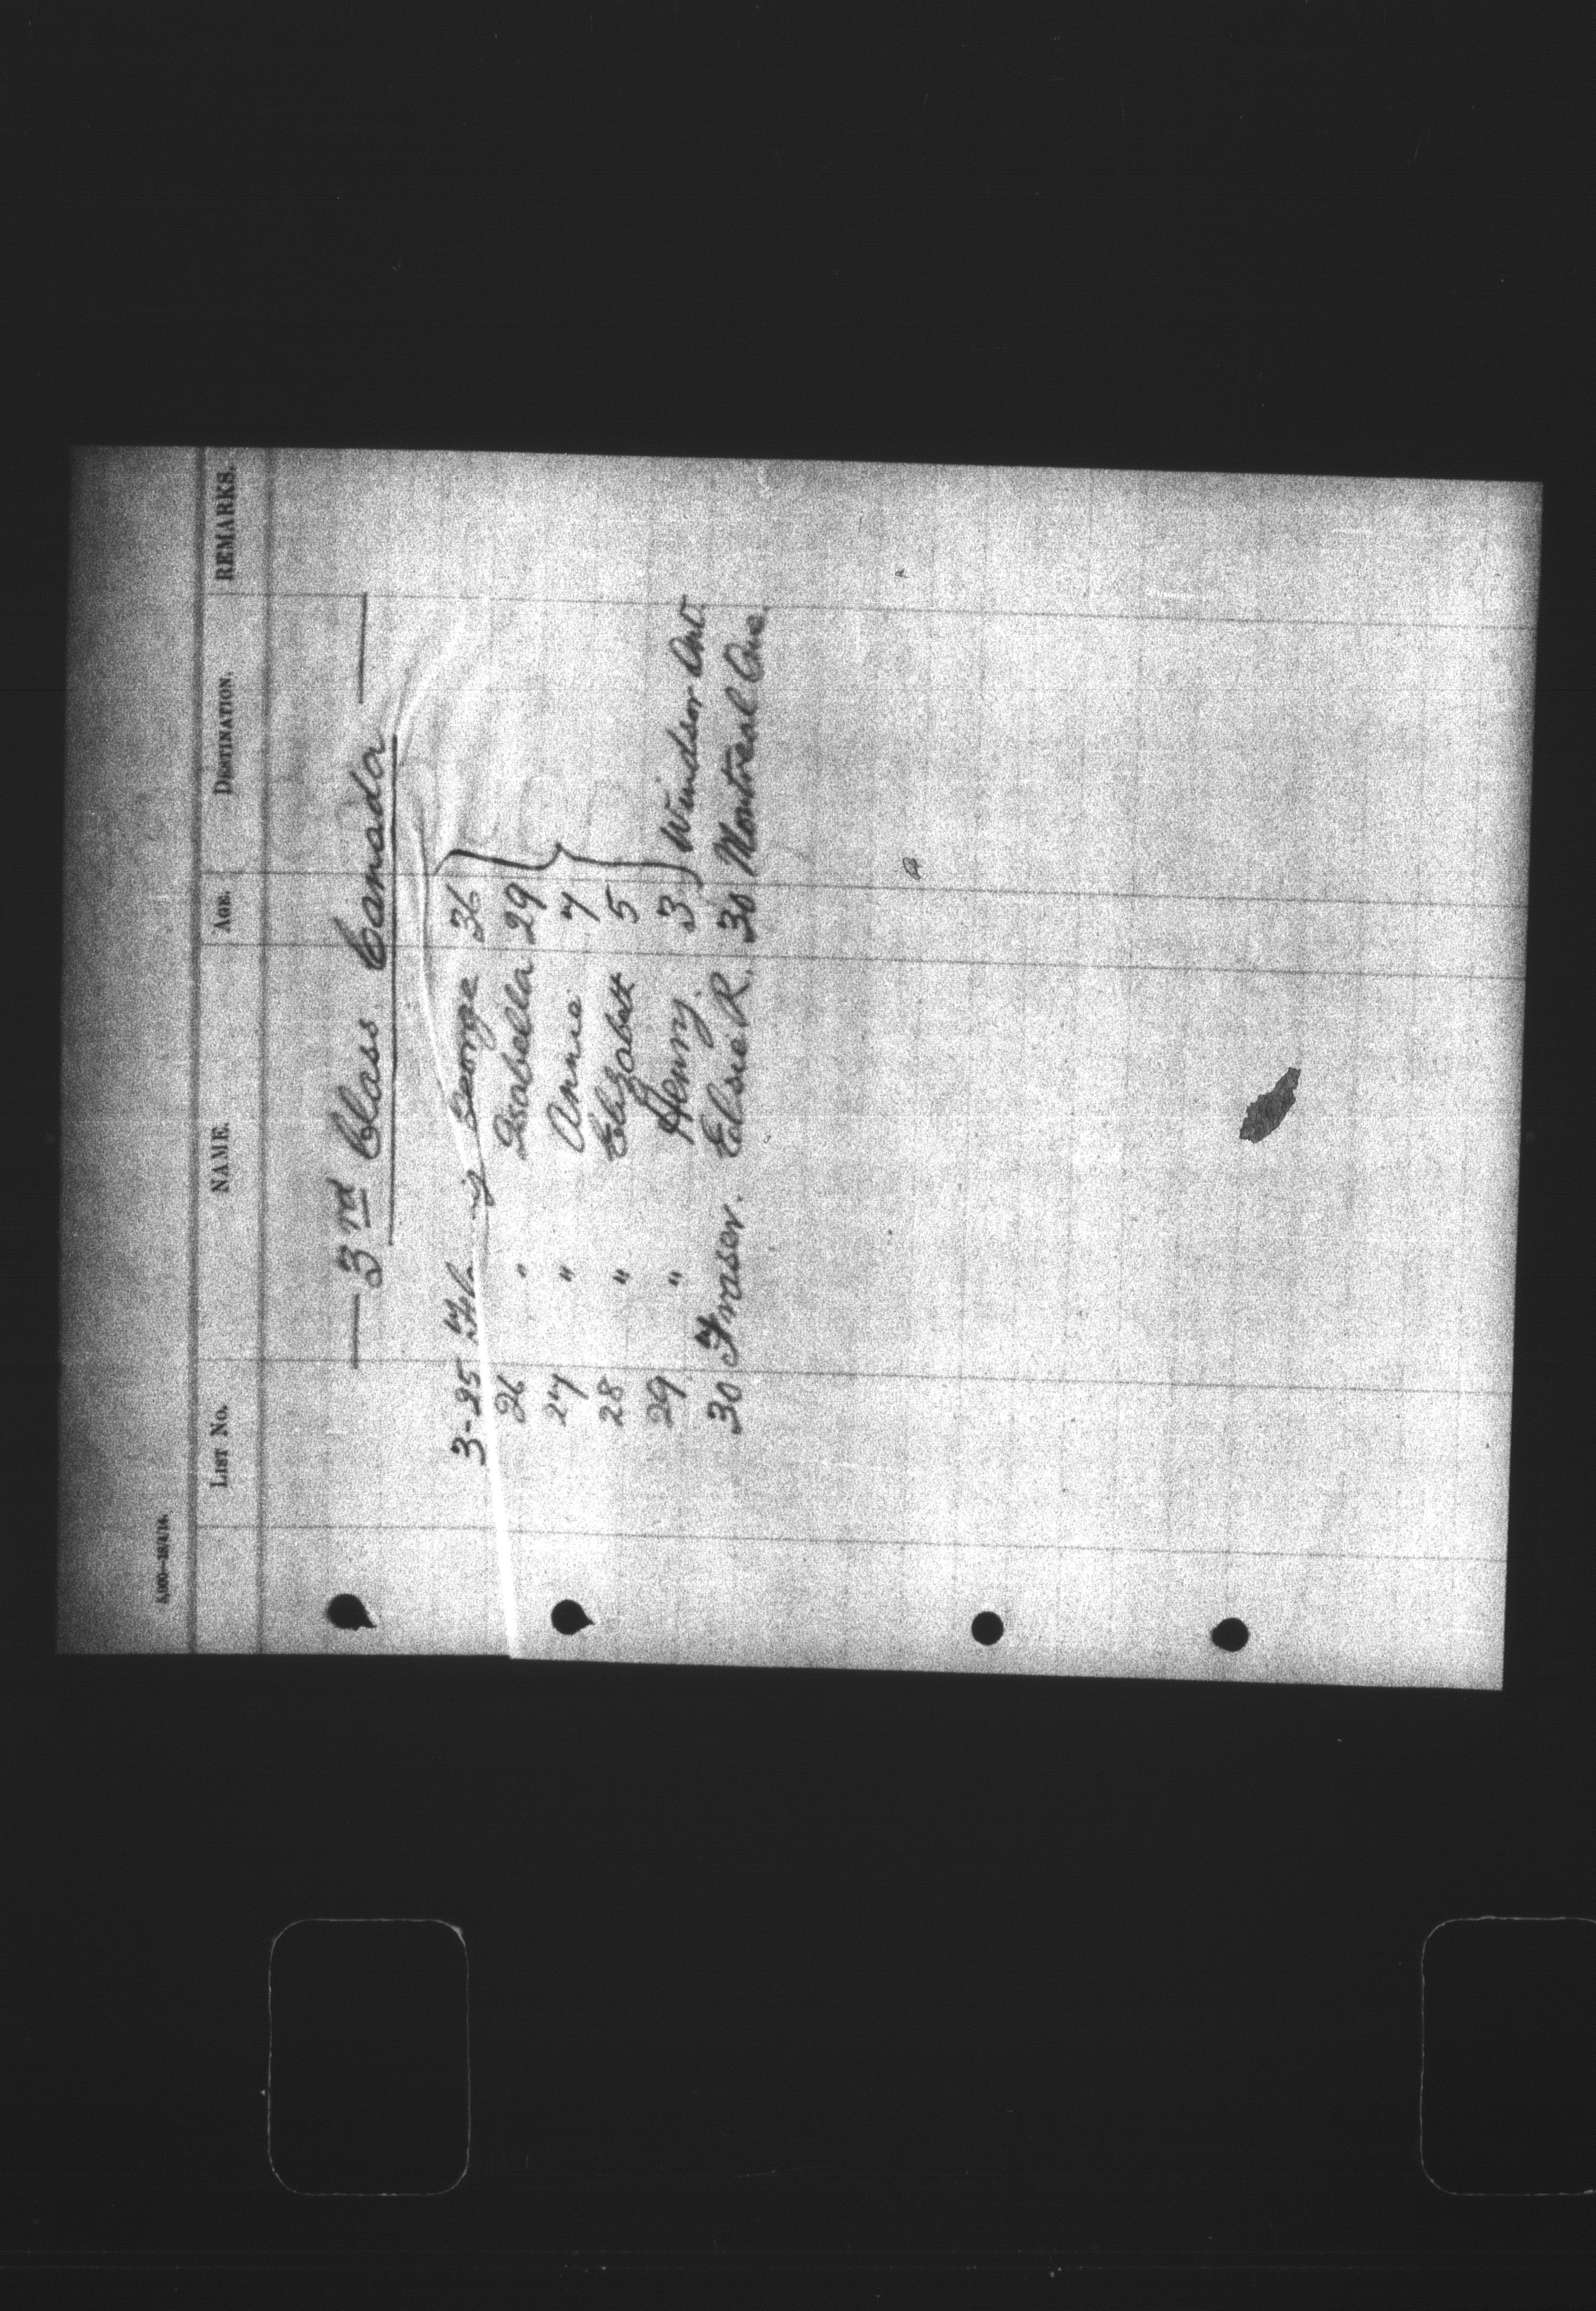 5,000—18/4/14.
LIST No. NAME. AGE. DESTINATION. REMARKS.
— 3rd Class Canada —
3-25 George 36
26 " Isabella 29
27 " Annie 7
28 " Elizabeth 5
29 " Henry. 3 Windsor Ont.
30 Fraser. Elsie R. 30 Montreal Que.